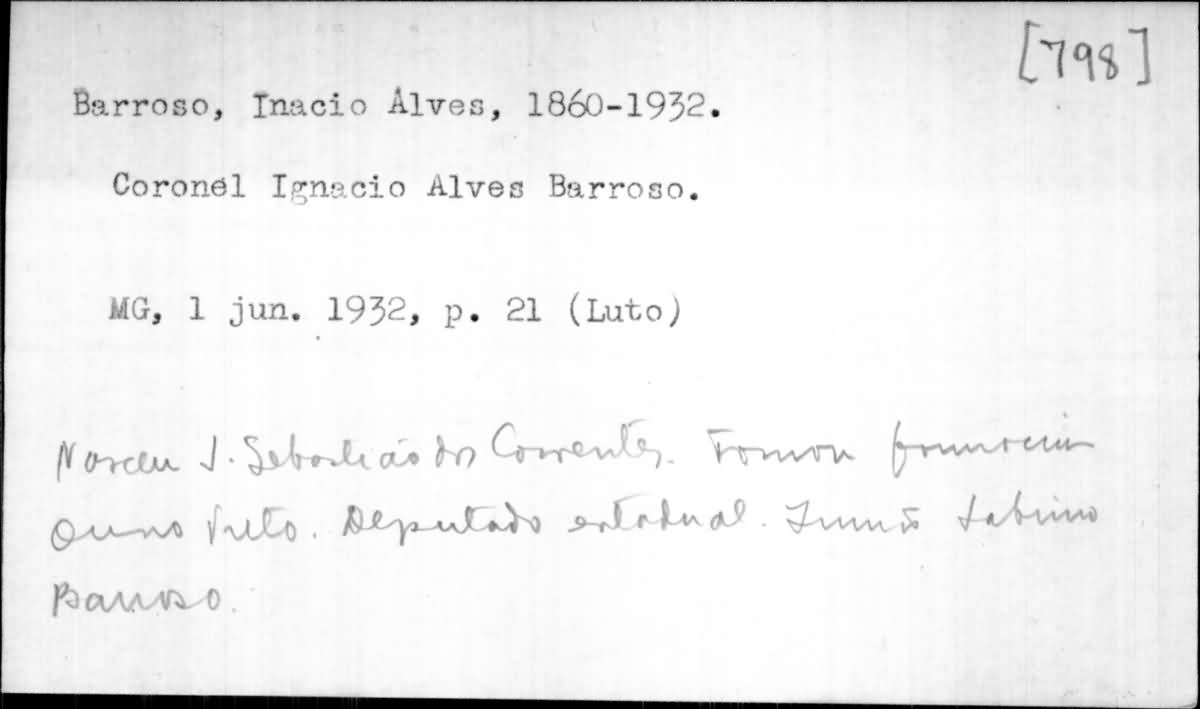 [798]
Barroso, Inacio Alves, 1860-1932.
Coronel Ignacio Alves Barroso.
MG, 1 jun. 1932, p. 21 (Luto)
Nasceu S. Sebastião dos Correntes. Formou farmacia
Ouro Preto. Deputado estadual. Irmão Sabino
Barroso.